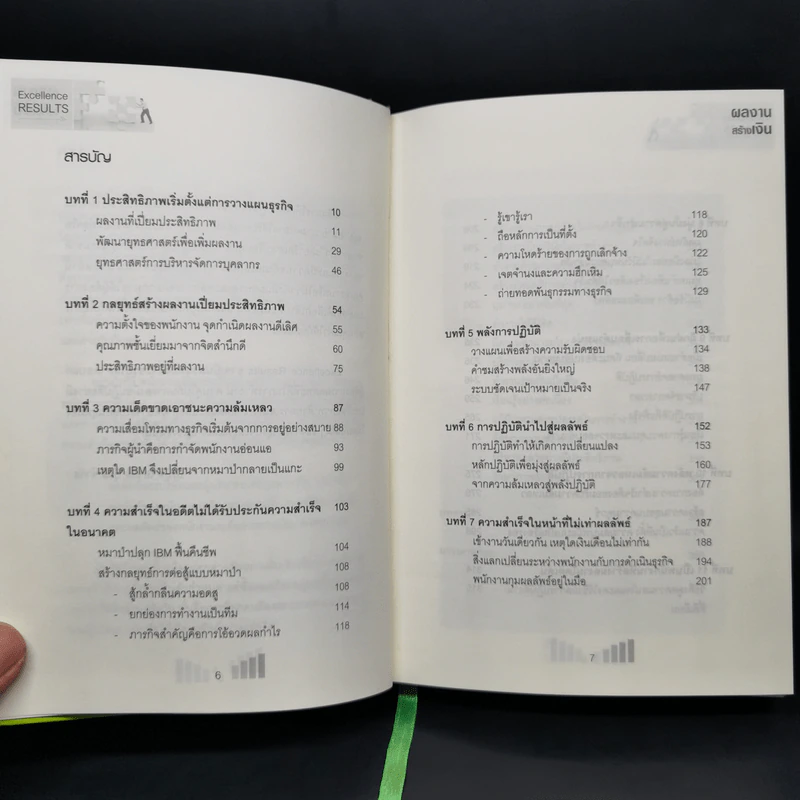 Excellence
RESULTS
สารบัญ
บทที่ 1 ประสิทธิภาพเริ่มตั้งแต่การวางแผนธุรกิจ 10
ผลงานที่เปี่ยมประสิทธิภาพ 11
พัฒนายุทธศาสตร์เพื่อเพิ่มผลงาน 29
ยุทธศาสตร์การบริหารจัดการบุคลากร 46
บทที่ 2 กลยุทธ์สร้างผลงานเปี่ยมประสิทธิภาพ 54
ความตั้งใจของพนักงาน จุดกำเนิดผลงานดีเลิศ 55
คุณภาพชั้นเยี่ยมมาจากจิตสำนึกดี 60
ประสิทธิภาพอยู่ที่ผลงาน 75
บทที่ 3 ความเด็ดขาดเอาชนะความล้มเหลว 87
ความเสื่อมโทรมทางธุรกิจเริ่มต้นจากการอยู่อย่างสบาย 88
ภารกิจผู้นำคือการกำจัดพนักงานอ่อนแอ 93
เหตุใด IBM จึงเปลี่ยนจากหมาป่ากลายเป็นแกะ 99
บทที่ 4 ความสำเร็จในอดีตไม่ได้รับประกันความสำเร็จ 103
ในอนาคต
หมาป่าปลุก IBM ฟื้นคืนชีพ 104
สร้างกลยุทธ์การต่อสู้แบบหมาป่า 108
- สู้กล้ำกลืนความอดสู 108
- ยกย่องการทำงานเป็นทีม 114
- ภารกิจสำคัญคือการโอ้อวดผลกำไร 118
6
ผลงาน
สร้างเงิน
- รู้เขารู้เรา 118
- ถือหลักการเป็นที่ตั้ง 120
- ความโหดร้ายของการถูกเลิกจ้าง 122
- เจตจำนงและความฮึกเหิม 125
- ถ่ายทอดพันธุกรรมทางธุรกิจ 129
บทที่ 5 พลังการปฏิบัติ 133
วางแผนเพื่อสร้างความรับผิดชอบ 134
คำชมสร้างพลังอันยิ่งใหญ่ 138
ระบบชัดเจนเป้าหมายเป็นจริง 147
บทที่ 6 การปฏิบัตินำไปสู่ผลลัพธ์ 152
การปฏิบัติทำให้เกิดการเปลี่ยนแปลง 153
หลักปฏิบัติเพื่อมุ่งสู่ผลลัพธ์ 160
จากความล้มเหลวสู่พลังปฏิบัติ 177
บทที่ 7 ความสำเร็จในหน้าที่ไม่เท่าผลลัพธ์ 187
เข้างานวันเดียวกัน เหตุใดเงินเดือนไม่เท่ากัน 188
สิ่งแลกเปลี่ยนระหว่างพนักงานกับการดำเนินธุรกิจ 194
พนักงานกุมผลลัพธ์อยู่ในมือ 201
7